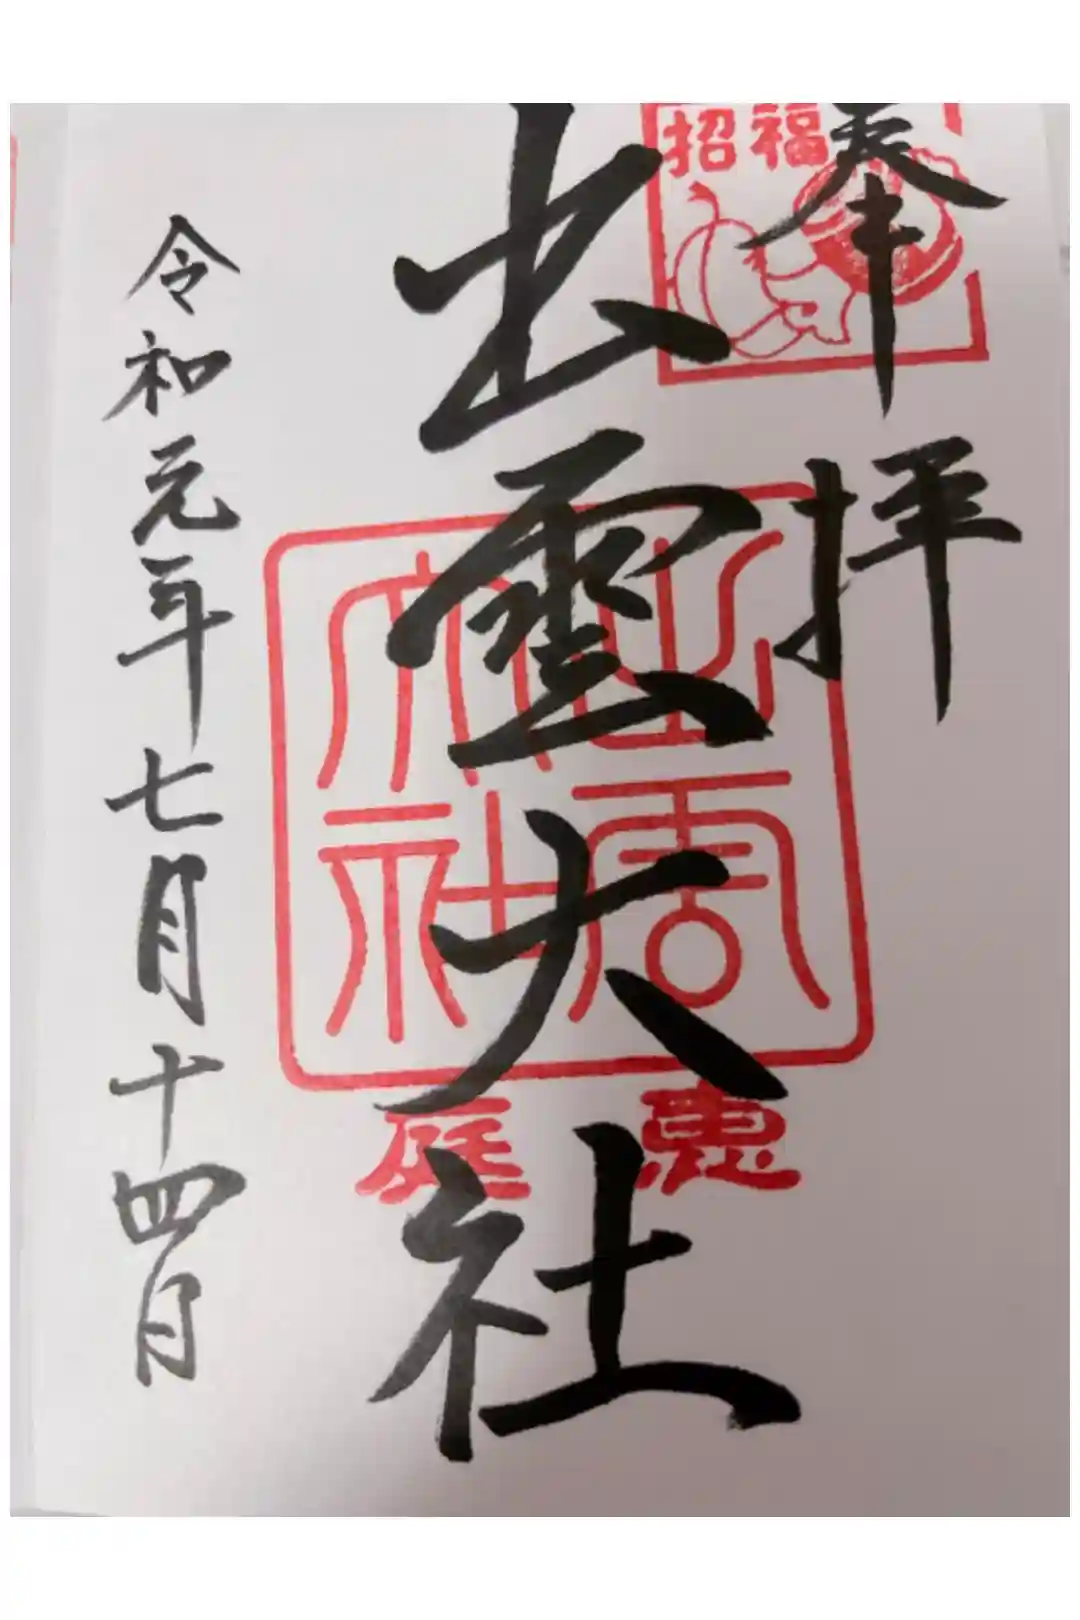 奉拝
招福
出雲大社
出雲
大社
恵庭
令和元年七月十四日